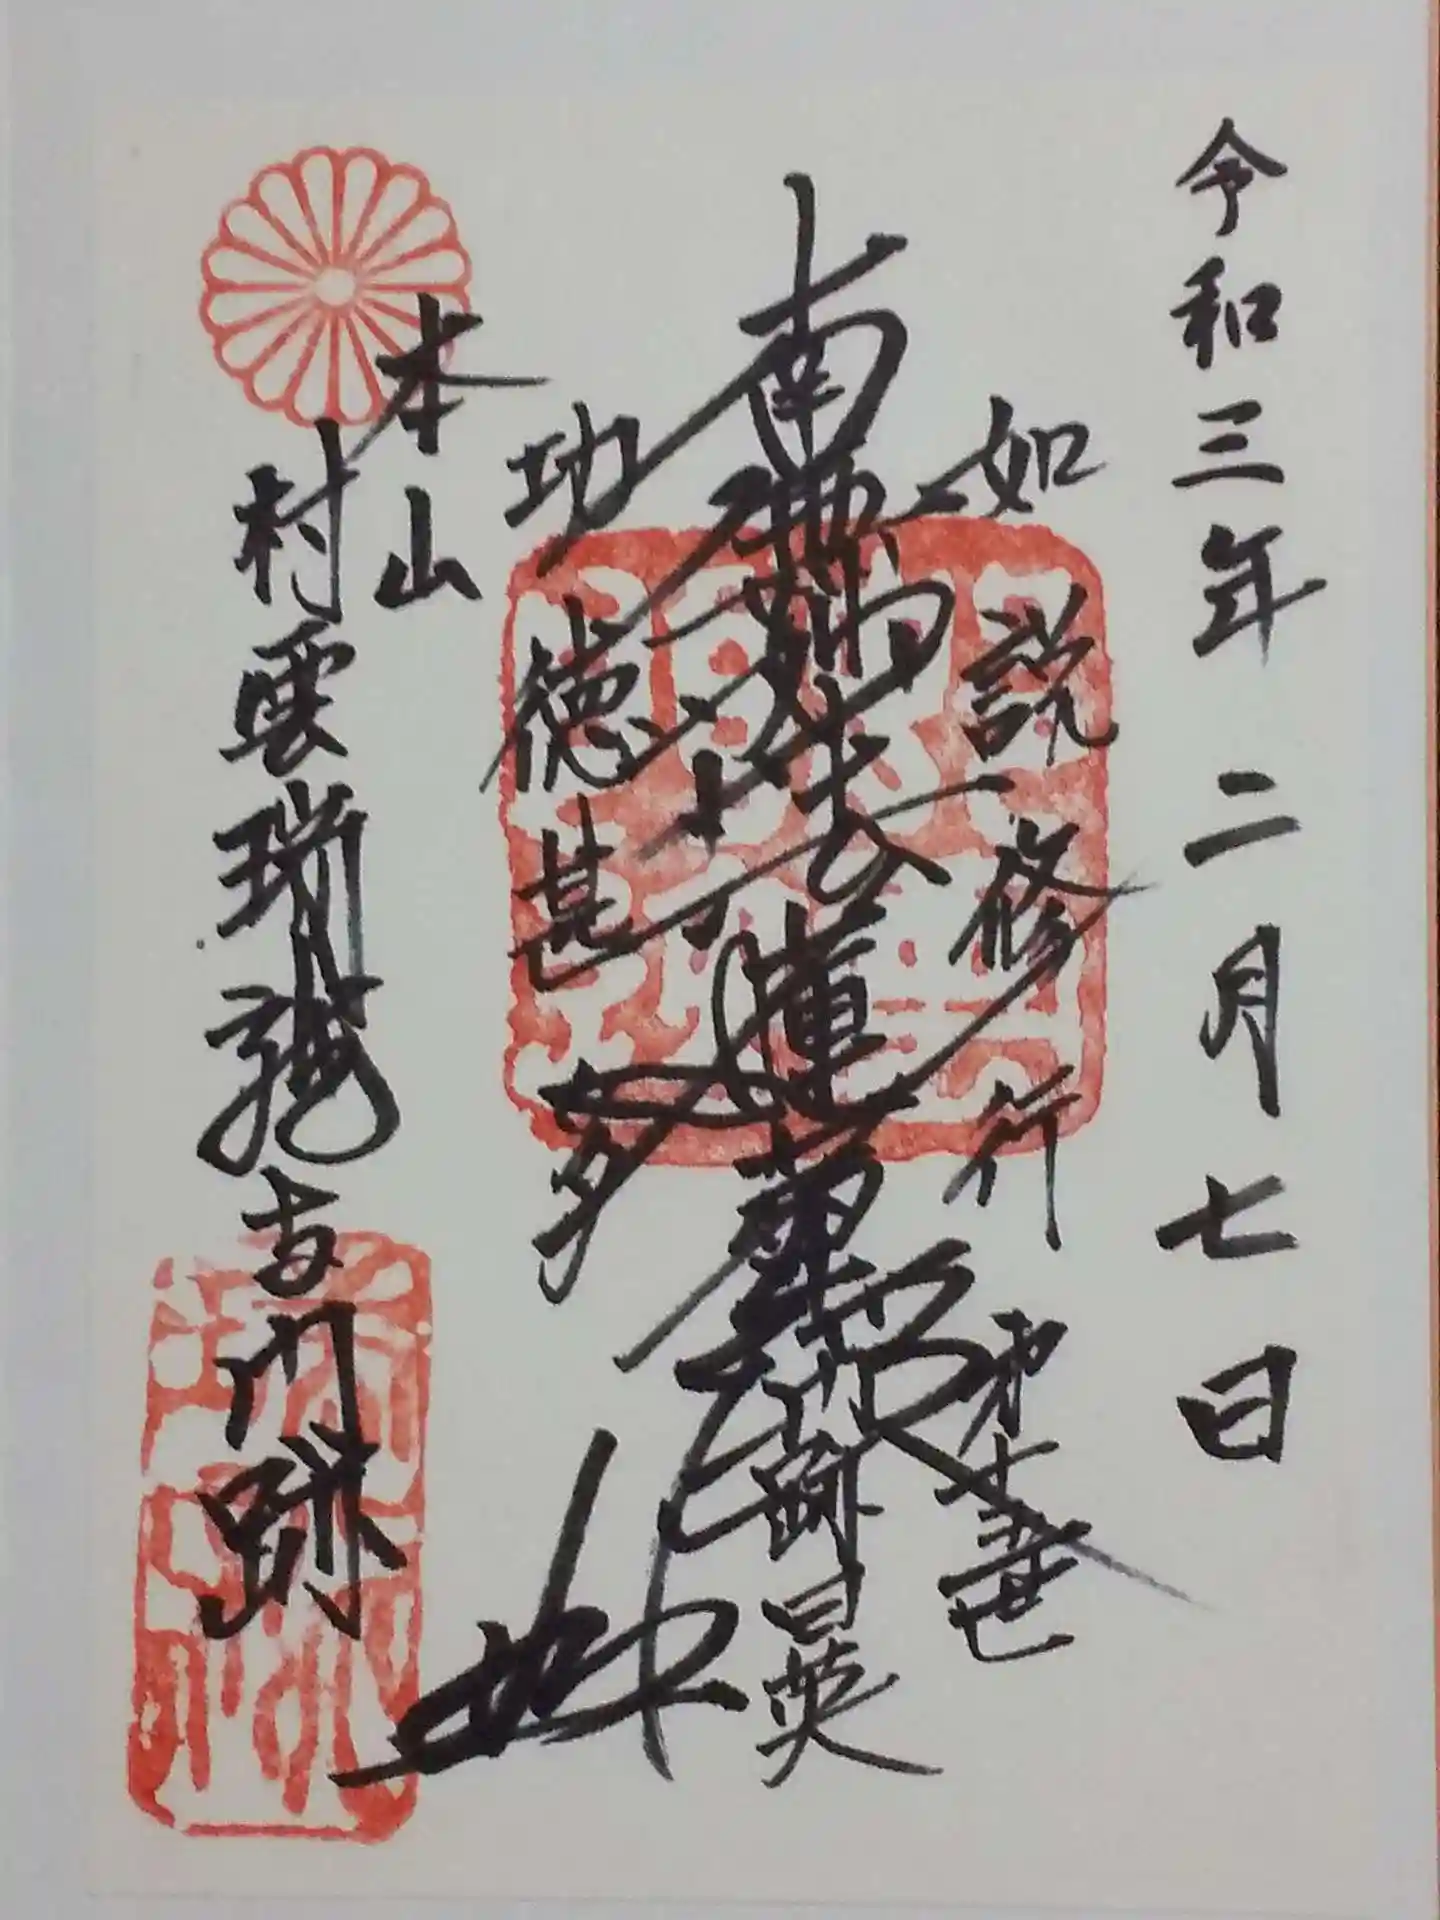 令和三年二月七日
如説修行
南無妙法蓮華経
門跡日英
功徳甚多
本山
村雲瑞龍寺門跡